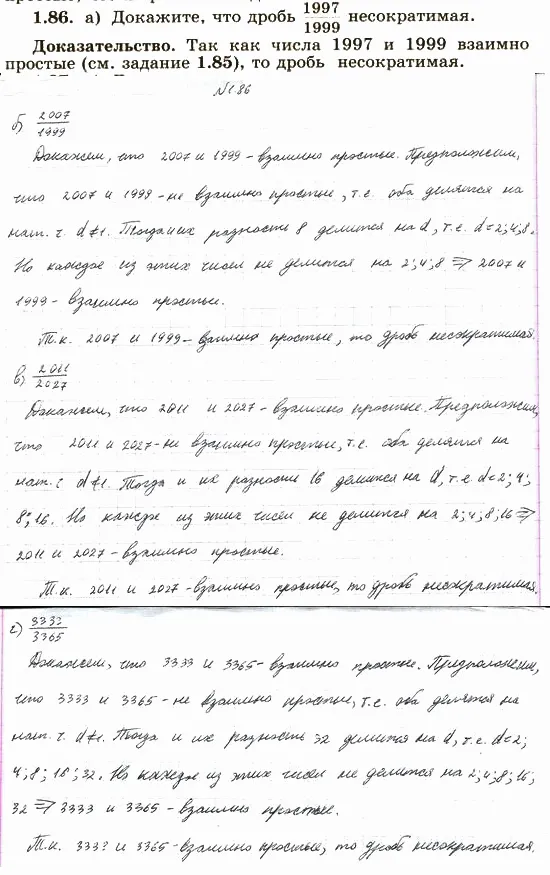 1.86. а) Докажите, что дробь 1997/1999 несократимая.
Доказательство. Так как числа 1997 и 1999 взаимно
простые (см. задание 1.85), то дробь несократимая.
№1.86
б) 2007/1999
Докажем, что 2007 и 1999 - взаимно простые. Предположим,
что 2007 и 1999 - не взаимно простые, т.е. оба делятся на
нат. ч. d≠1. Тогда и их разность 8 делится на d, т.е. d=2;4;8.
Но каждое из этих чисел не делится на 2;4;8 ⇒ 2007 и
1999 - взаимно простые.
Т.к. 2007 и 1999 - взаимно простые, то дробь несократимая.
в) 2011/2027
Докажем, что 2011 и 2027 - взаимно простые. Предположим,
что 2011 и 2027 - не взаимно простые, т.е. оба делятся на
нат. ч d≠1. Тогда и их разность 16 делится на d, т.е. d=2;4;
8;16. Но каждое из этих чисел не делится на 2;4;8;16 ⇒
2011 и 2027 - взаимно простые.
Т.к. 2011 и 2027 - взаимно простые, то дробь несократимая.
г) 3333/3365
Докажем, что 3333 и 3365 - взаимно простые. Предположим,
что 3333 и 3365 - не взаимно простые, т.е. оба делятся на
нат. ч. d≠1. Тогда и их разность 32 делится на d, т.е. d=2;
4;8;16;32. Но каждое из этих чисел не делится на 2;4;8;16;
32 ⇒ 3333 и 3365 - взаимно простые.
Т.к. 3333 и 3365 - взаимно простые, то дробь несократимая.